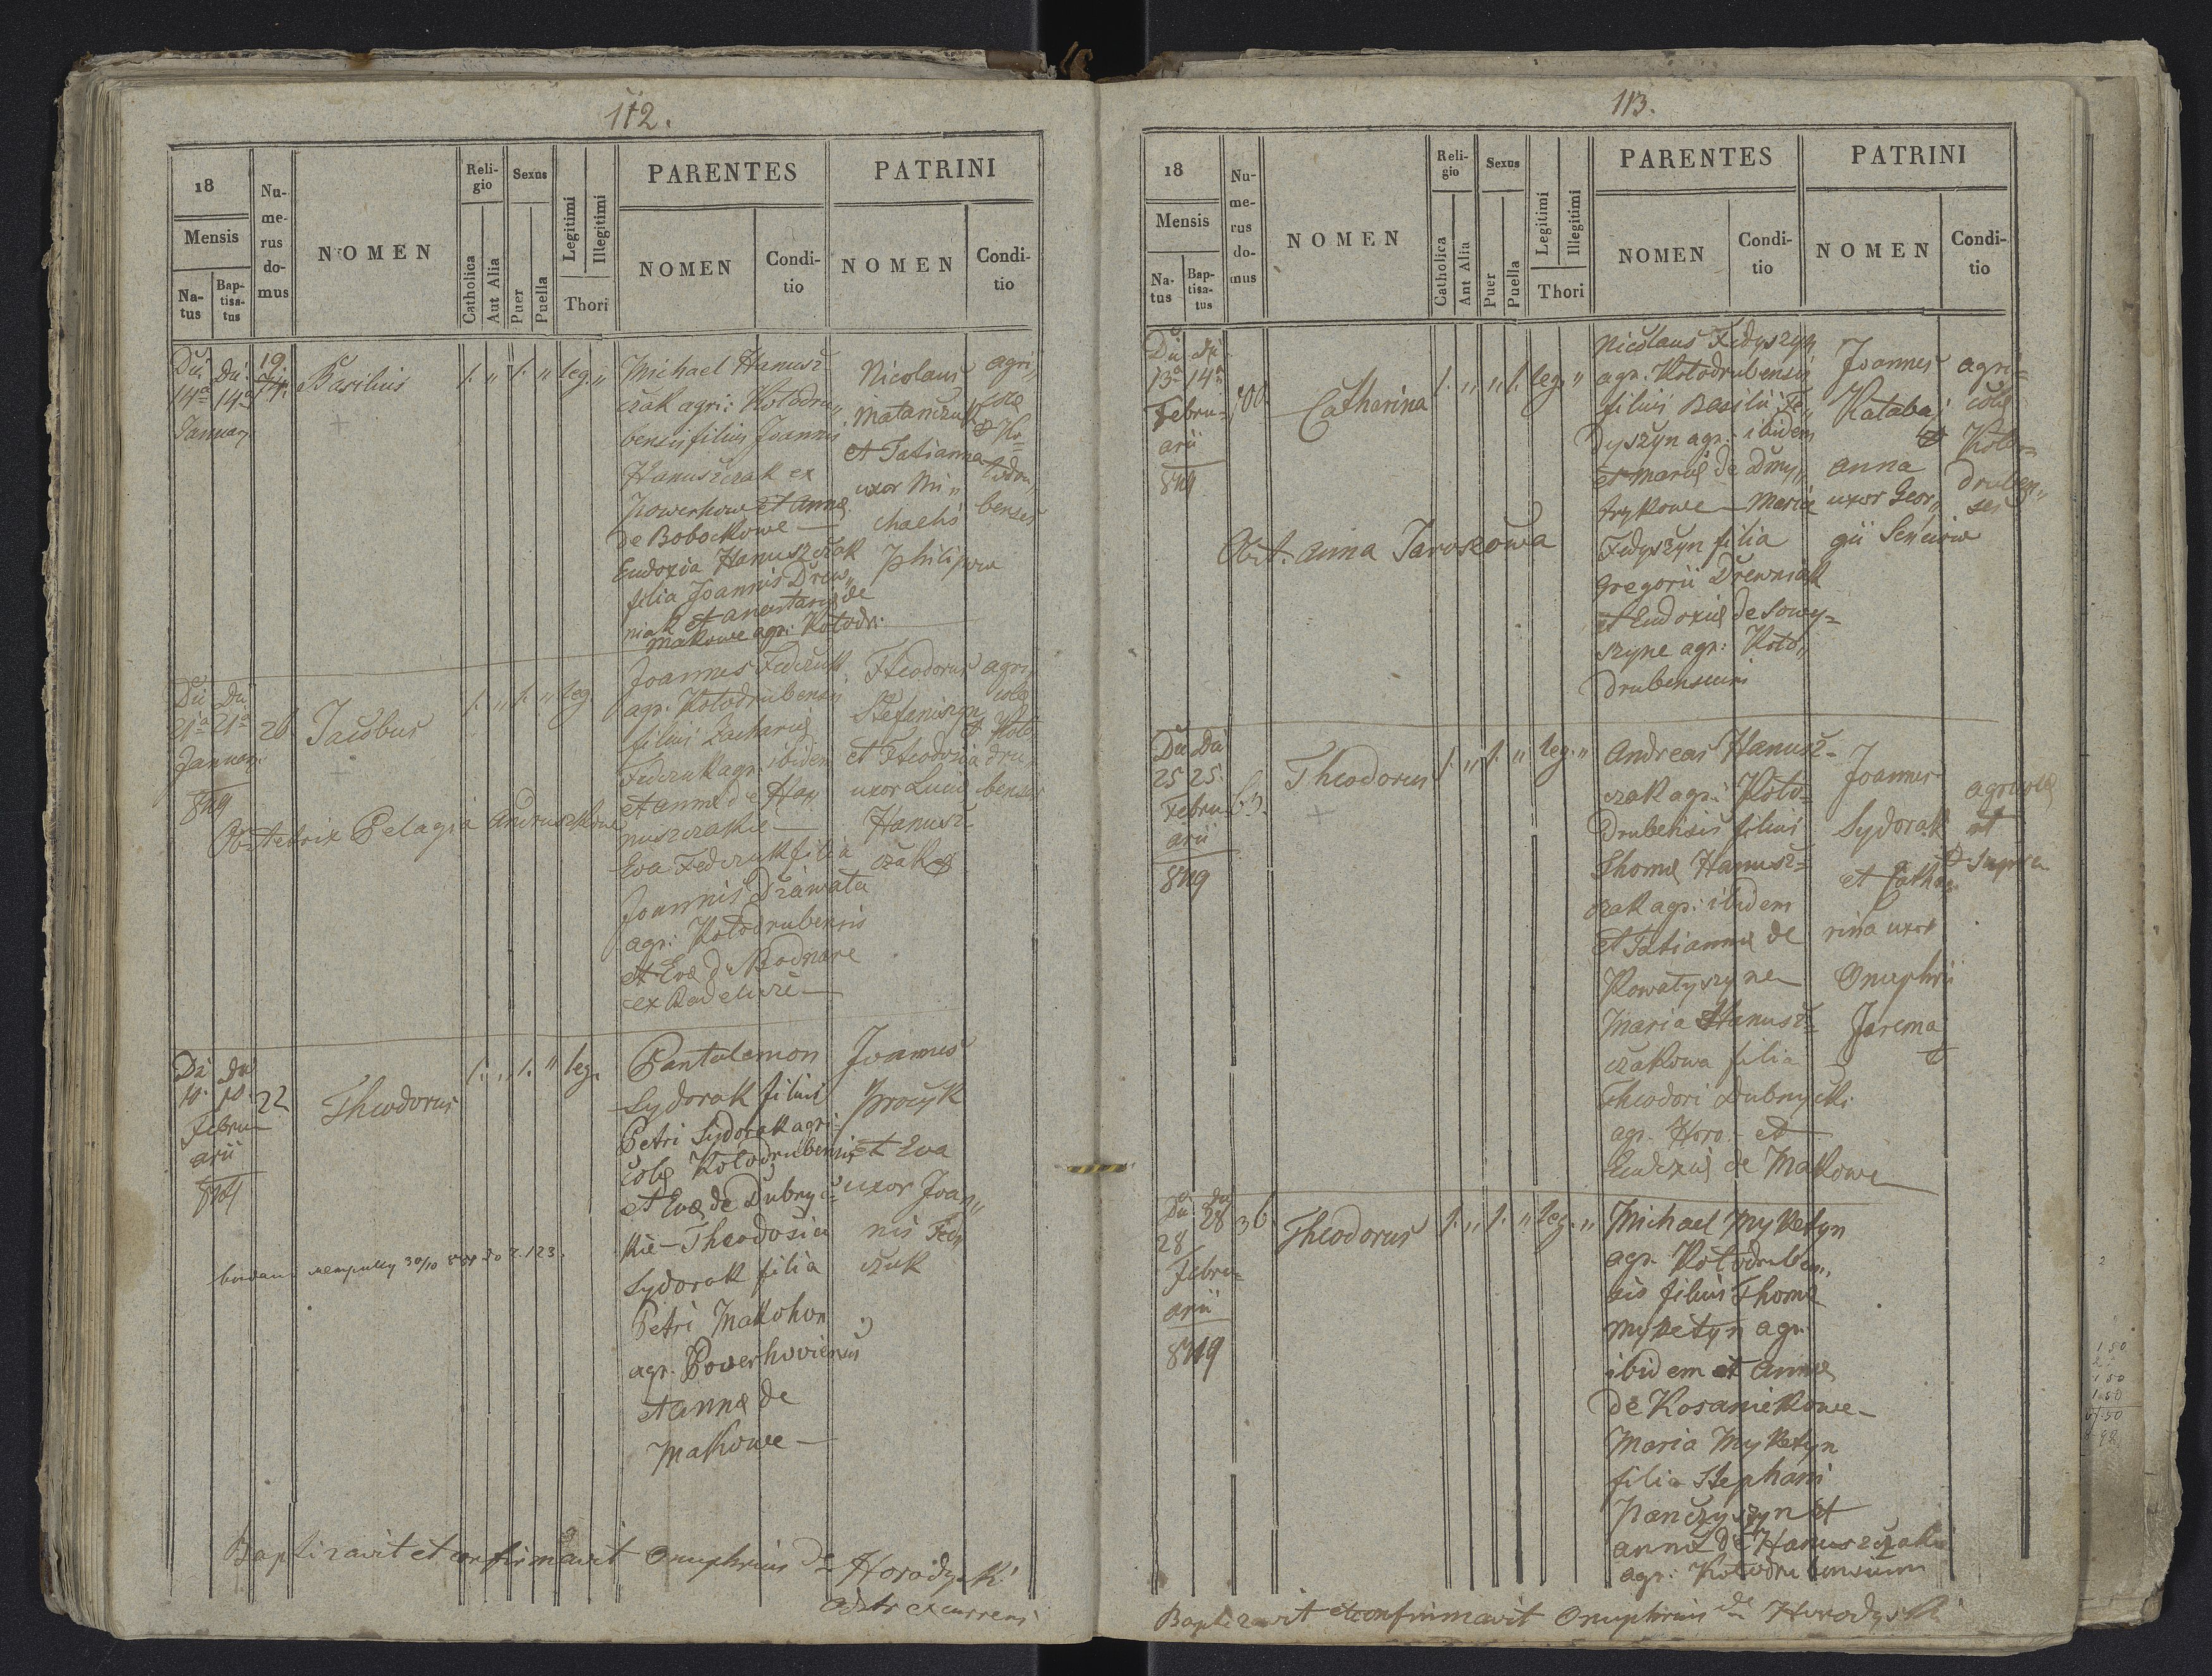 112.
18
Mensis
Na-
tus
Bap-
tisa-
tus
Nu-
me-
rus
do-
mus
NOMEN
Reli-
gio
Catholica
Aut Alia
Sexus
Puer
Puella
Legitimi
Illegitimi
Thori
PARENTES
NOMEN
Condi-
tio
PATRINI
NOMEN
Condi-
tio
14a 14a
January
19.
Basilius
1. „ 1. „ leg. „
Michael Hanusz
czak agri: Kołodru„
bensis filius Joannis
Hanuszczak ex
Powerhow et Annæ
de Bobockowe —
Eudoxia Hanuszczak
filia Joannis Drew„
niak et anastasiæ de
Makowe agr: Kołodr:
Nicolaus
Matanczuk
et Tatianna
uxor Mi„
chaelis
Philipow
agri„
colæ
Ko„
łodru„
benses
21a 21a
January
849
26
Jacobus
1. „ 1. „ leg.
Obstetrix Pelagia Andruszkowa
Joannes Fedczuk
agr. Kołodrubensis
filius Zachariæ
Fedczuk agr. ibidem
et annæ de Ha„
nuszczakie —
Eva Fedczuk filia
Joannis Drawata
agr: Kołodrubensis
et Evæ de Bodnare
ex —
Theodorus
Stefaniszyn
et Theodozia
uxor Lucæ
Hanusz
czak
agri
colæ
Koło
dru„
benses
10. 10.
Febru-
arii
849
22
Theodorus
1. „ 1. „ leg.
30/10 123.
Pantalemon
Sydorak filius
Petri Sydorak agri-
colæ Kołodrubensis
et Evæ de Dubnyc-
kie — Theodosia
Sydorak filia
Petri Makohon
agr. Powerhoviensis
et annæ de
Makowe —
Joannes
Procyk
et Eva
uxor Joan„
nis Fed„
czuk
Baptizavit et confirmavit Onuphrius de Horodyski
Adstr excurrens
113.
18
Mensis
Na-
tus
Bap-
tisa-
tus
Nu-
me-
rus
do-
mus
NOMEN
Reli-
gio
Catholica
Aut Alia
Sexus
Puer
Puella
Legitimi
Illegitimi
Thori
PARENTES
NOMEN
Condi-
tio
PATRINI
NOMEN
Condi-
tio
13a 14a
Febru-
arii
849
Catherina
1. „ „ 1. leg. „
Obst. Anna Jaroszowa
Nicolaus Fedyszyn
agr. Kołodrubensis
filius Basilii Fe„
dyszyn agr. ibidem
et Mariæ de Dmy„
trykowe — Maria
Fedyszyn filia
Gregorii Drewniak
et Eudoxiæ de Sowy=
szyne agr: Koło„
drubensium
Joannes
Kataba
Anna
uxor Geor„
gii Senciow
agri=
colæ
Koło=
druben„
ses
25 25
Febru
arii
849
Theodorus
1. „ 1. „ leg. „
Andreas Hanusz-
czak agr: Koło-
drubensis filius
Thomæ Hanusz=
czak agr: ibidem
et Tatiannæ de
Kowałyszyne
Maria Hanusz=
czakowa filia
Theodori Dubnycki
agr. Horo. et
Eudoxiæ de Makowe
Joannes
Sydorak
et Catha„
rina uxor
Onuphrii
Jarema
agricolæ
ut
supra
28 28
Febru=
arii
849
36
Theodorus
1. „ 1. „ leg. „
Michael Myketyn
agr. Kołodruben„
sis filius Thomæ
Myketyn agr.
ibidem et annæ
de Kosaniekowe —
Maria Myketyn
filia Stephani
Panczyszyn et
annæ de Hanuszczakie
agr: Kołodrubensium
Baptizavit et confirmavit Onuphrius de Horodyski